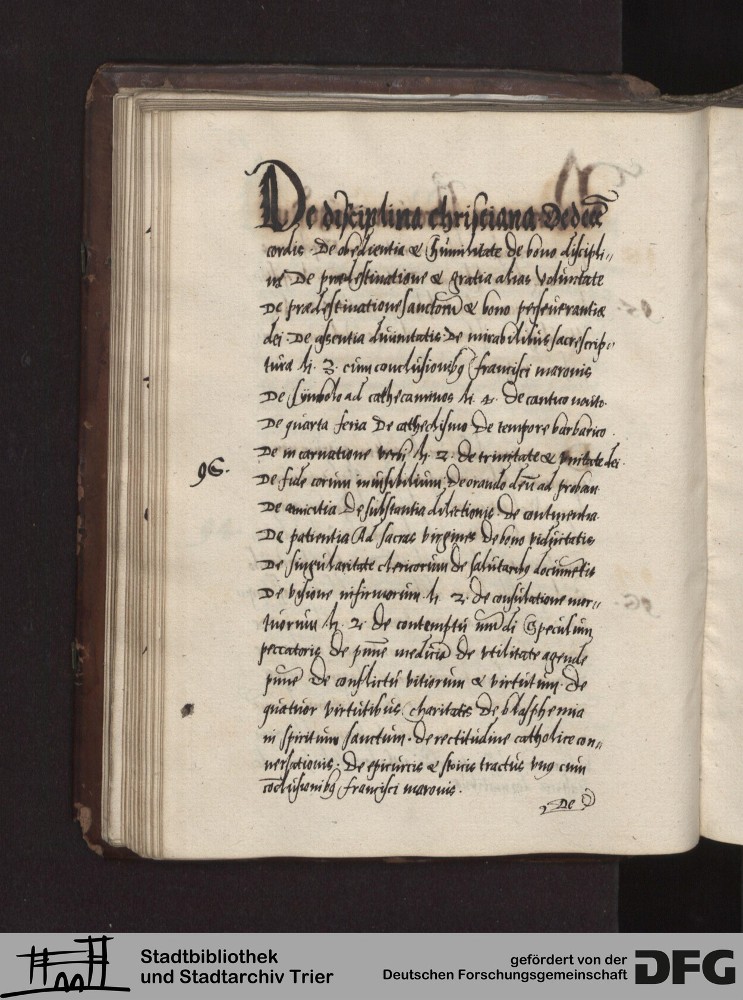 De disciplina christiana De dece
cordis · De obedientia & humilitate de bono discipli„
ne De prædestinatione & gratia alias voluntate
De prædestinatione sanctorū & bono perseuerantiæ
dei · De essentia diuinitatis · De mirabilibus sacre scrip„
turæ li. 3. cum conclusionibꝫ francisci maronis
De Symbolo ad cathecuminos li. 4. De cantico nouo.
De quarta feria De cathecismo De tempore barbarico.
De incarnatione verbi li. 2. de trinitate & vnitate dei.
96.
De fide rerum inuisibilium, De orando deū ad probam
De amicitia De substantia dilectionis De continentia.
De patientia Ad sacras virgines De bono viduitatis
De singularitate clericorum de salutaribꝫ documētis
De visione infirmorum li. 2. de consolatione mor„
tuorum li. 2. de contemptu mūdi Speculum
peccatoris De pnīæ medicina De vtilitate agende
pnīæ De conflictu vitiorum & virtutum. De
quatuor virtutibus charitatis De blasphemia
in spiritum sanctum. De rectitudine catholice con„
uersationis. De epicureis & stoicis tractus vnꝰ cum
cōclusionibꝫ francisci maronis.
De
Stadtbibliothek
und Stadtarchiv Trier
gefördert von der
Deutschen Forschungsgemeinschaft
DFG